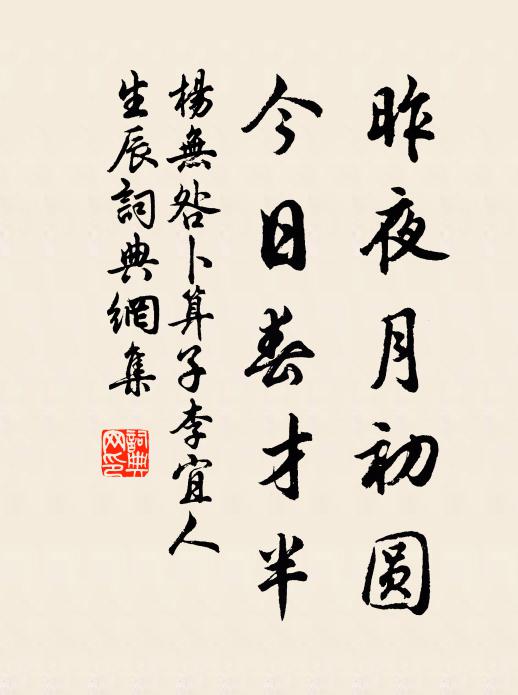 昨夜月初圆
今日春才半
楊無咎卜算子李宜人
生辰詞典網集
詞典网印